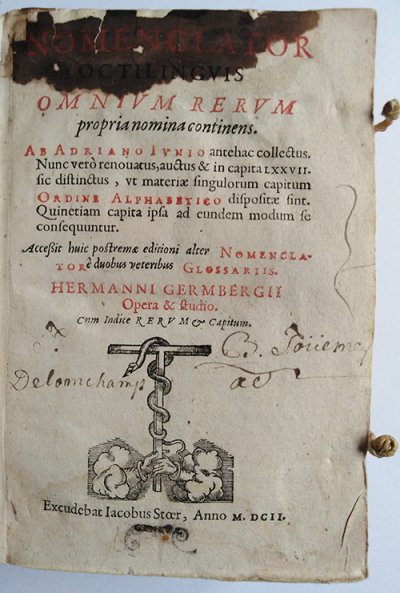 NOMENCLATOR
OCTILINGVIS
OMNIVM RERVM
propria nomina continens.
AB ADRIANO IVNIO antehac collectus.
Nunc verò renouatus, auctus & in capita LXXVII.
sic distinctus, vt materiæ singulorum capitum
ORDINE ALPHABETICO dispositæ sint.
Quinetiam capita ipsa ad eundem modum se
consequuntur.
Accessit huic postremæ editioni alter NOMENCLA-
TOR è duobus veteribus GLOSSARIIS.
HERMANNI GERMBERGII
Opera & studio.
Cum Indice RERVM & Capitum.
Delonchamp
Excudebat Iacobus Stœr, Anno M. DCII.